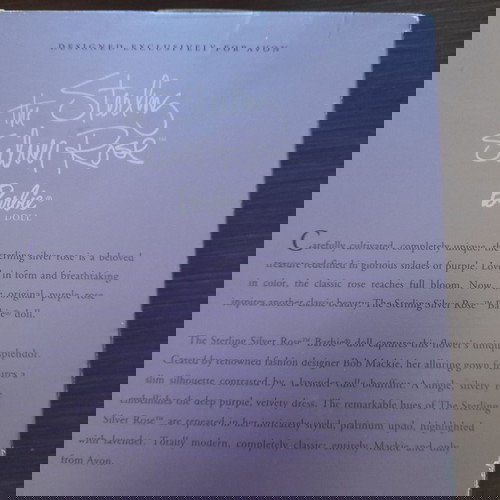 DESIGNED EXCLUSIVELY FOR AVON
The Sterling
Silver Rose™
Barbie™
DOLL
Carefully cultivated, completely unique, the
erling silver rose is a beloved
treasure redefined in glorious shades of purple. Love
in form and breathtaking
in color, the classic rose reaches full bloom. Now,
original purple rose
inspires another classic beauty: The Sterling Silver Rose™ Ba
doll."
The Sterling Silver Rose™ Barbie® doll captures the flower's unique
splendor.
Created by renowned fashion designer Bob Mackie, her alluring gown fe
a
slim silhouette contrasted by a flounce. A single, silvery r
the deep purple, velvety dress. The remarkable hues of The Sterling
Silver Rose™ are repeated in her intricately styled, platinum updo, highlighted
with lavender. Totally modern, completely classic, entirely Mackie and only
from Avon.